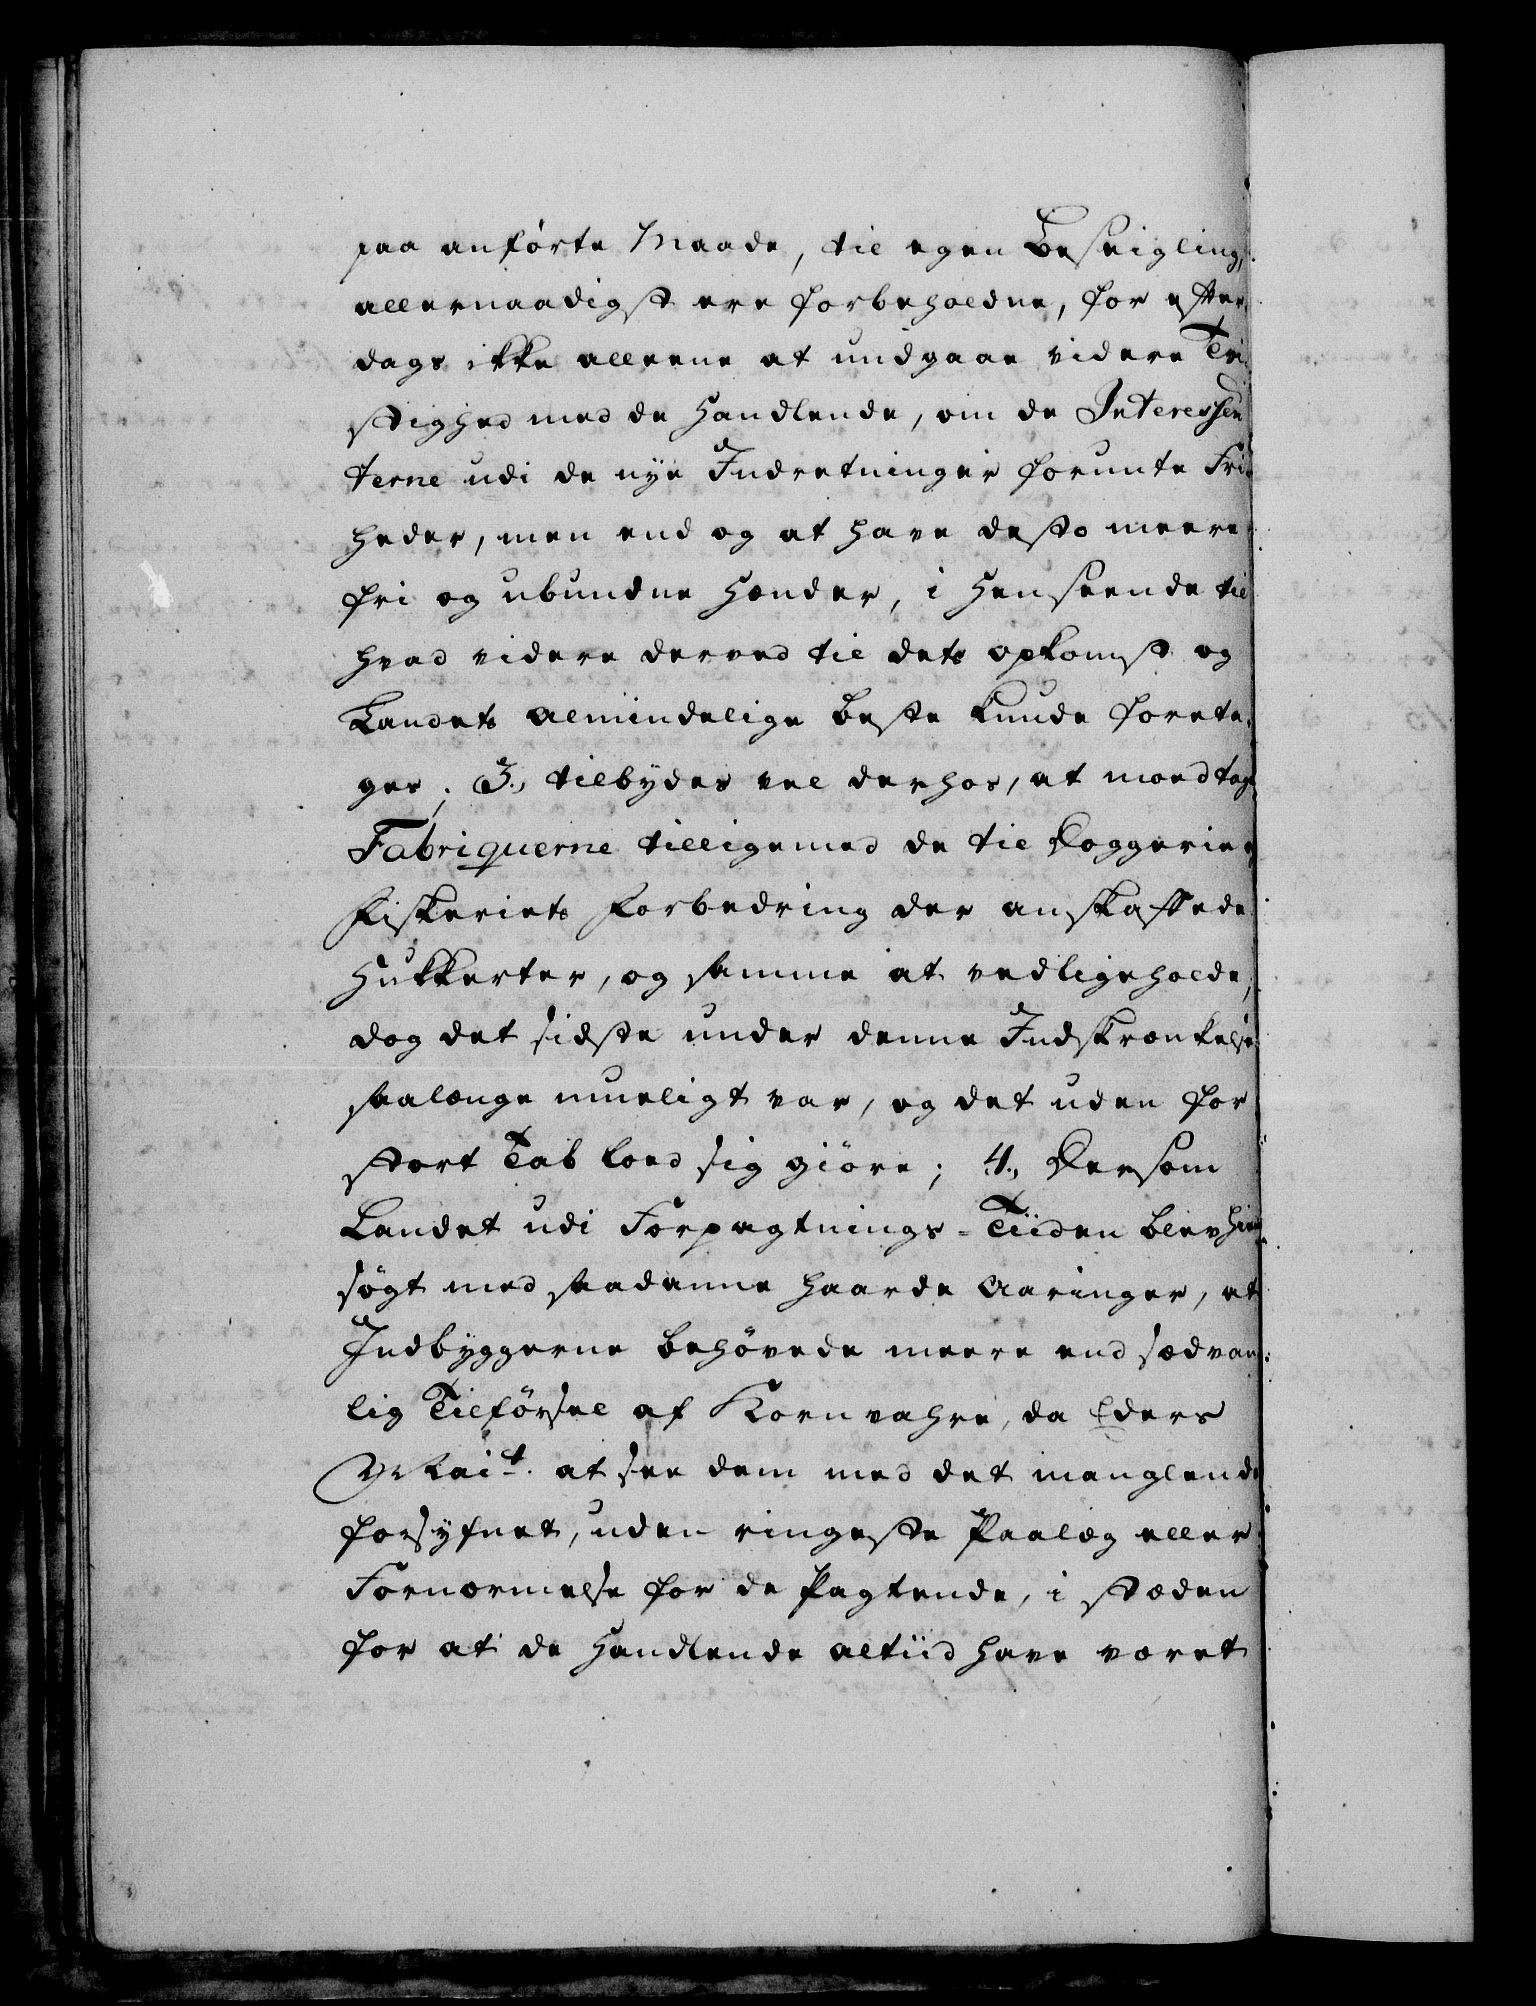 paa anførte Maade, til egen Beseigling,
allernaadigst ere forbeholdne, for efter
dags ikke alleene at undgaae videre Tvi
stighed med de Handlende, om de Interessen
terne udi de nye Indretninger forunte Fri
heder, men end og at have desto meere
frie og ubundne Hænder, i Henseende til
hvad videre derved til dets opkomst og
Landets almindelige beste kunde foreta-
ges; 3., tilbydes vel derhos, at modtage
Fabriquerne tilligemed de til Doggerie
Fiskeriets Forbedring der anskaffede
Hukkerter, og samme at vedligeholde,
dog det sidste under denne Indskrænkelse
saalænge mueligt var, og det uden for
stort Tab loed sig giøre; 4., Dersom
Landet udi Forpagtnings-Tiiden blev hiem
søgt med saadanne haarde Aaringer, at
Indbyggerne behøvede meere end sædvan-
lig Tilførsel af Kornvahre, da Eders
Mait. at see dem med det manglende
forsynet, uden ringeste Paalæg eller
Fornærmelse for de Pagtende, i stæden
for at de Handlende altiid have været